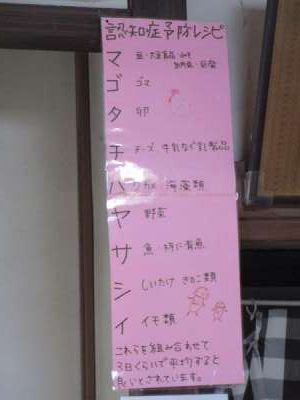 認知症予防レシピ
マ 豆・大豆食品 みそ 納豆・豆腐
ゴ ゴマ
タ 卵
チ チーズ 牛乳など乳製品
ハ ワカメ 海藻類
ヤ 野菜
サ 魚 特に青魚
シ しいたけ きのこ類
イ イモ類
これらを組み合わせて
3日くらいで平均すると
良いとされています。